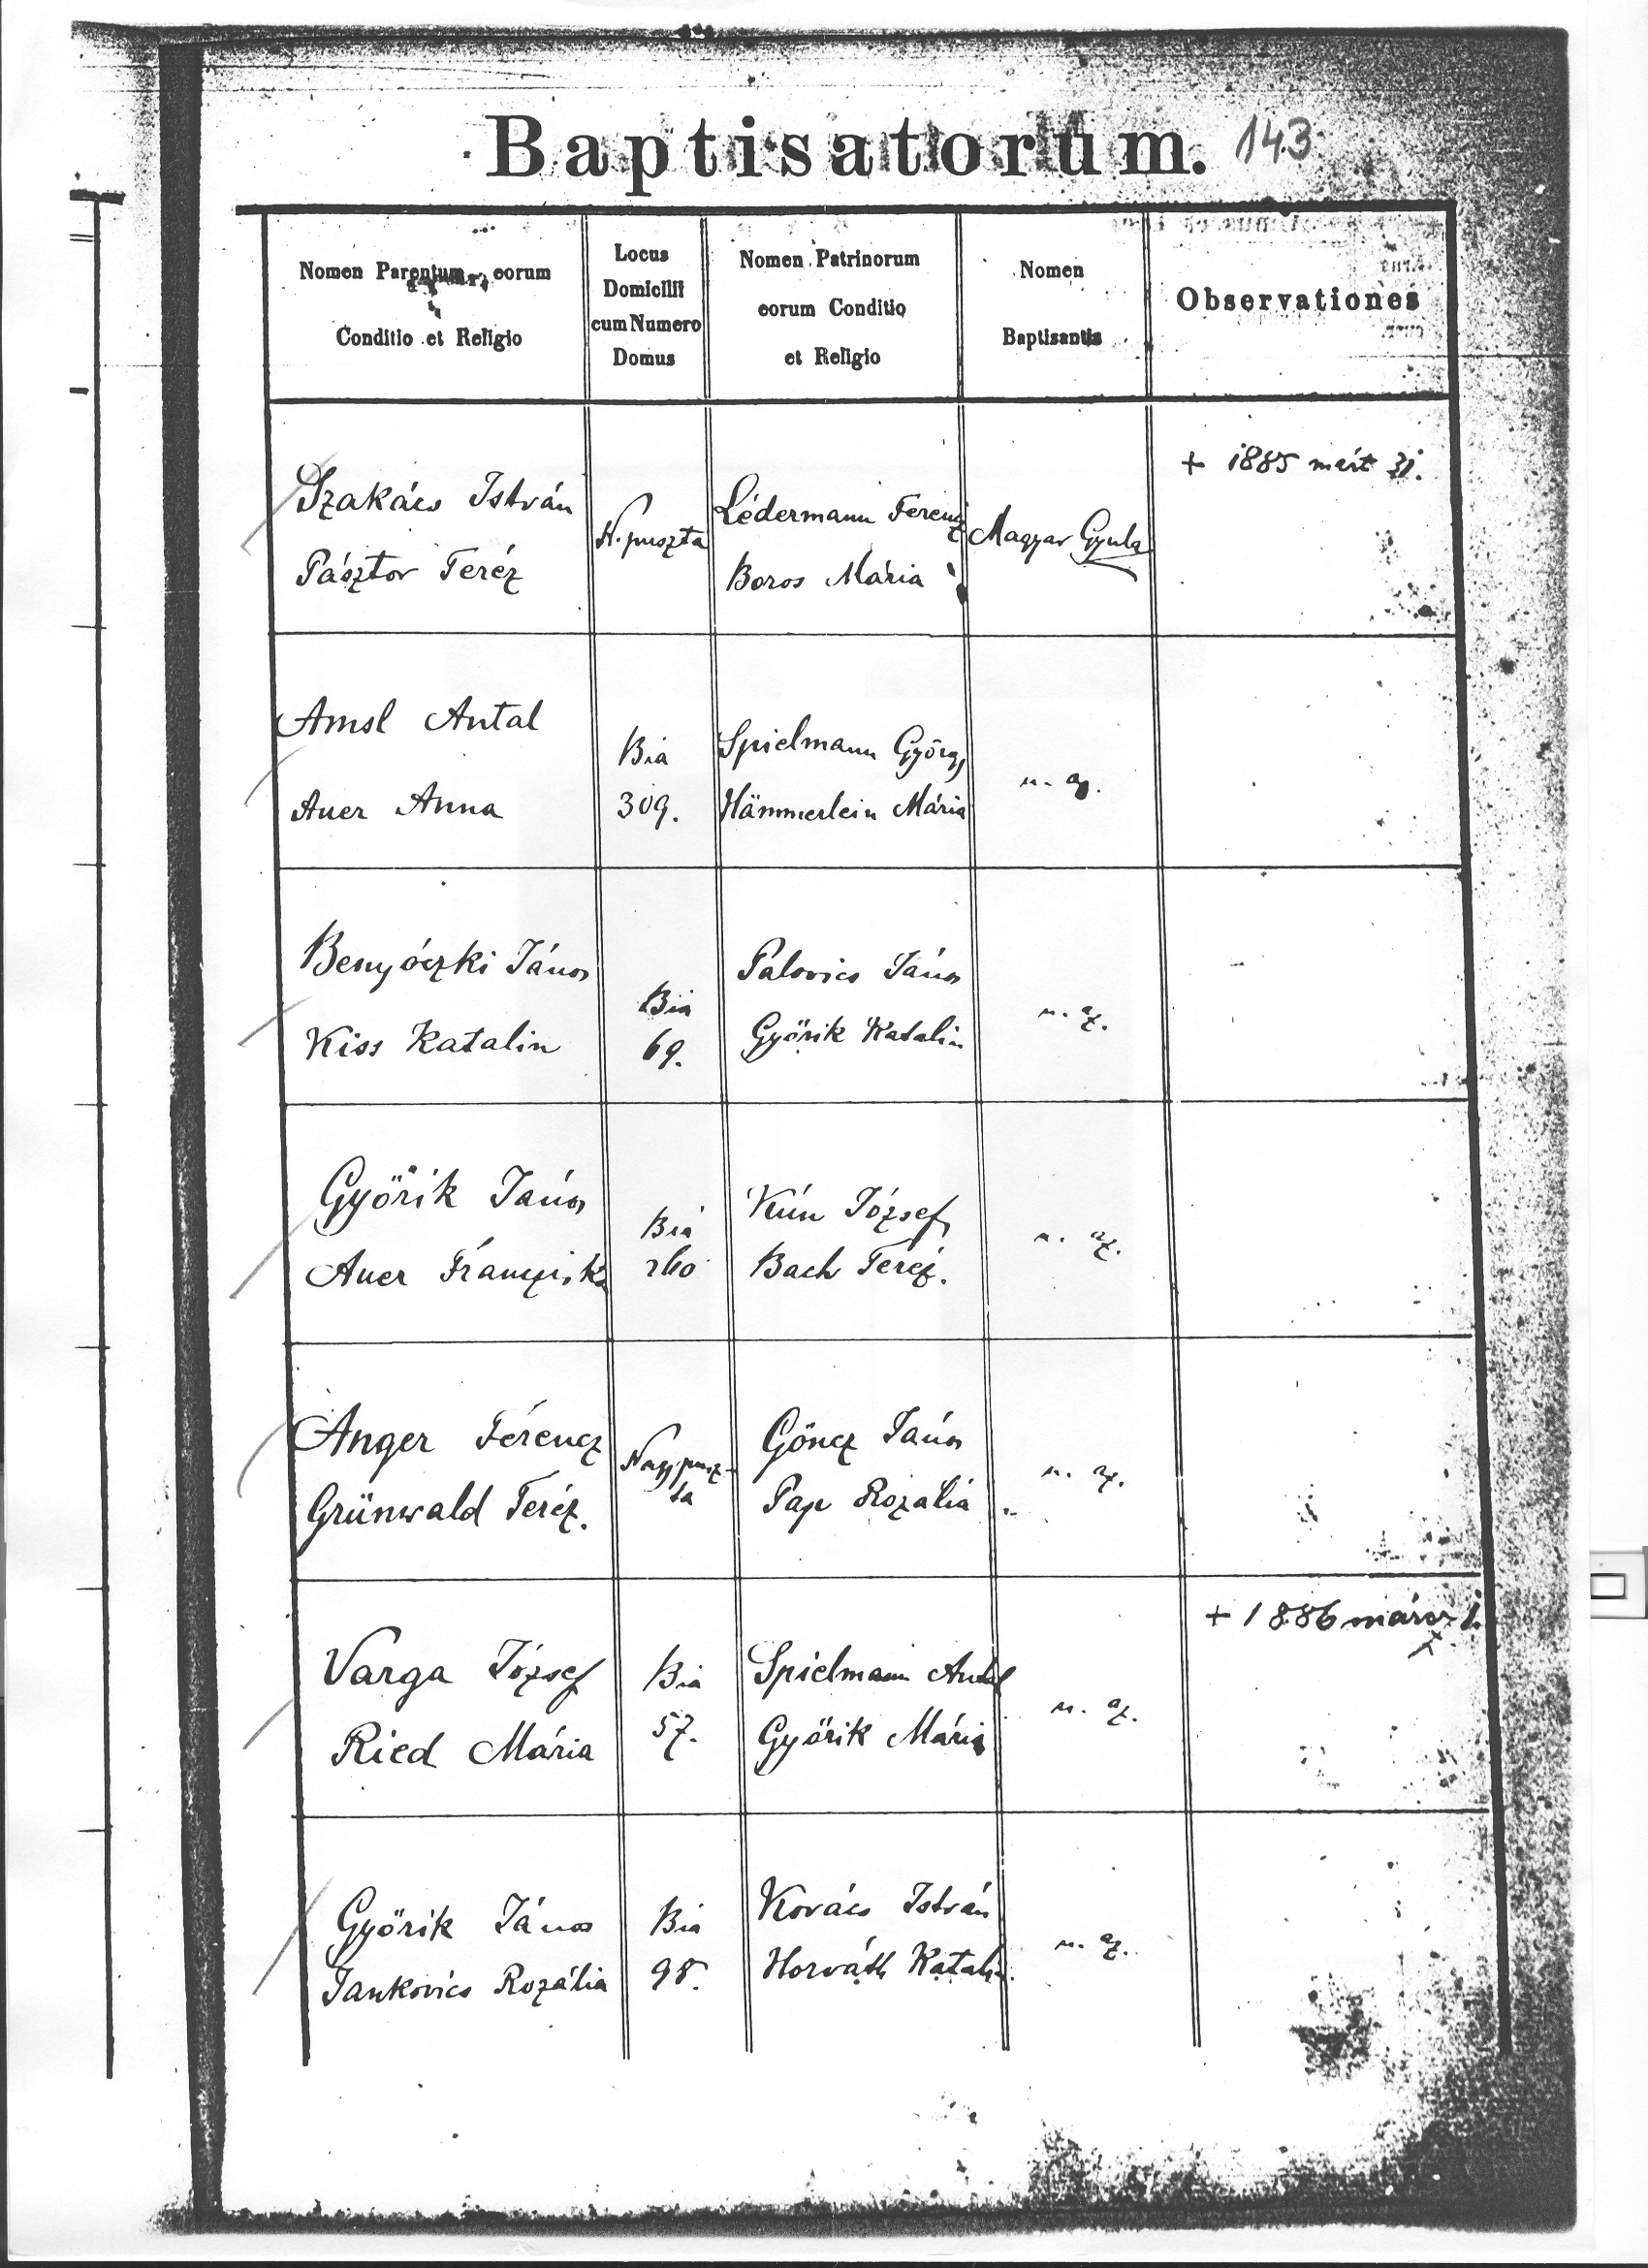 Baptisatorum. 143
Nomen Parentum, eorum
Conditio et Religio
Locus
Domicilii
cum Numero
Domus
Nomen Patrinorum
eorum Conditio
et Religio
Nomen
Baptisantis
Observationes
Szakács István
Pásztor Teréz
N. puszta
Lédermann Ferencz
Boros Mária
Magyar Gyula
+ 1885 márt 31.
Amsl Antal
Auer Anna
Bia
309.
Spielmann György
Hämmerlein Mária
u. az.
Benyóczki János
Kiss Katalin
Bia
69.
Palovics János
Győrik Katalin
u. az.
Győrik János
Auer Francziska
Bia
260
Kún József
Bach Teréz.
u. az.
Anger Ferencz
Grünwald Teréz.
Nagypusz-
ta
Göncz János
Pap Rozália
u. az.
Varga József
Ried Mária
Bia
57.
Spielmann Antal
Győrik Mária
u. az.
+ 1886 márcz 1.
Győrik János
Jankovics Rozália
Bia
98.
Kovács István
Horváth Katalin.
u. az.